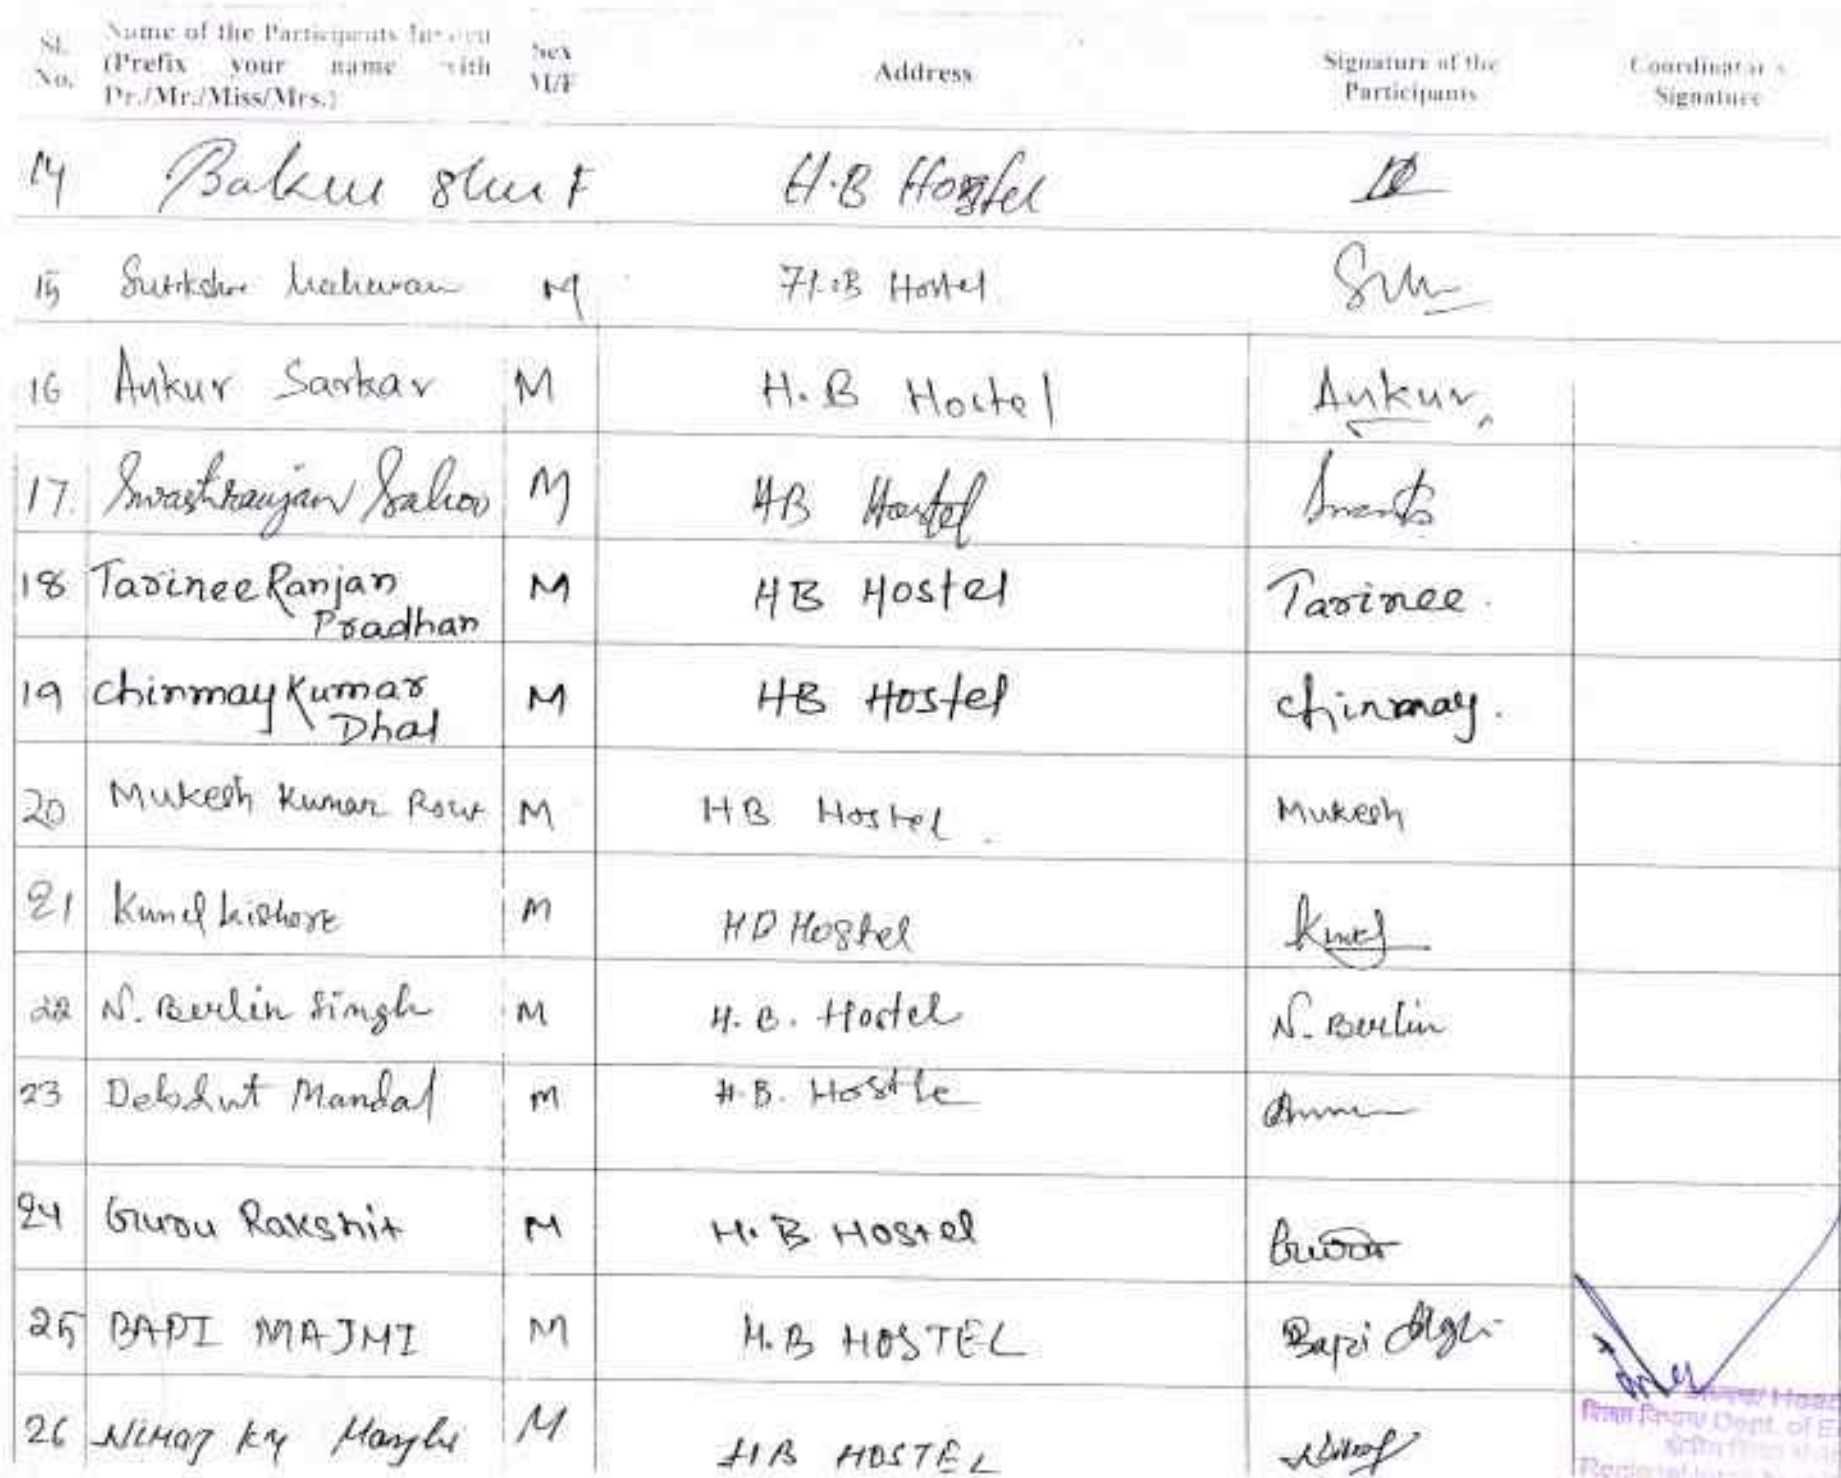 Sl. No. Name of the Participants (Prefix your name with Dr./Mr./Miss/Mrs.) Sex M/F Address Signature of the Participants Coordinator's Signature
14 F H.B Hostel
15 M H.B Hostel
16 Ankur Sarkar M H.B Hostel Ankur
17. Swastiranjan Sahoo M HB Hostel
18 Tarinee Ranjan Pradhan M HB Hostel Tarinee.
19 Chinmay Kumar Dhal M HB Hostel Chinmay.
20 Mukesh Kumar Rout M HB Hostel Mukesh
21 Kishore M HB Hostel
22 N. Berlin Singh M H.B. Hostel N. Berlin
23 Mandal M H.B. Hostle
24 Guru Rakshit M H.B Hostel Guru
25 BAPI MAJHI M H.B HOSTEL Bapi
26 M HB HOSTEL
Head
Dept. of